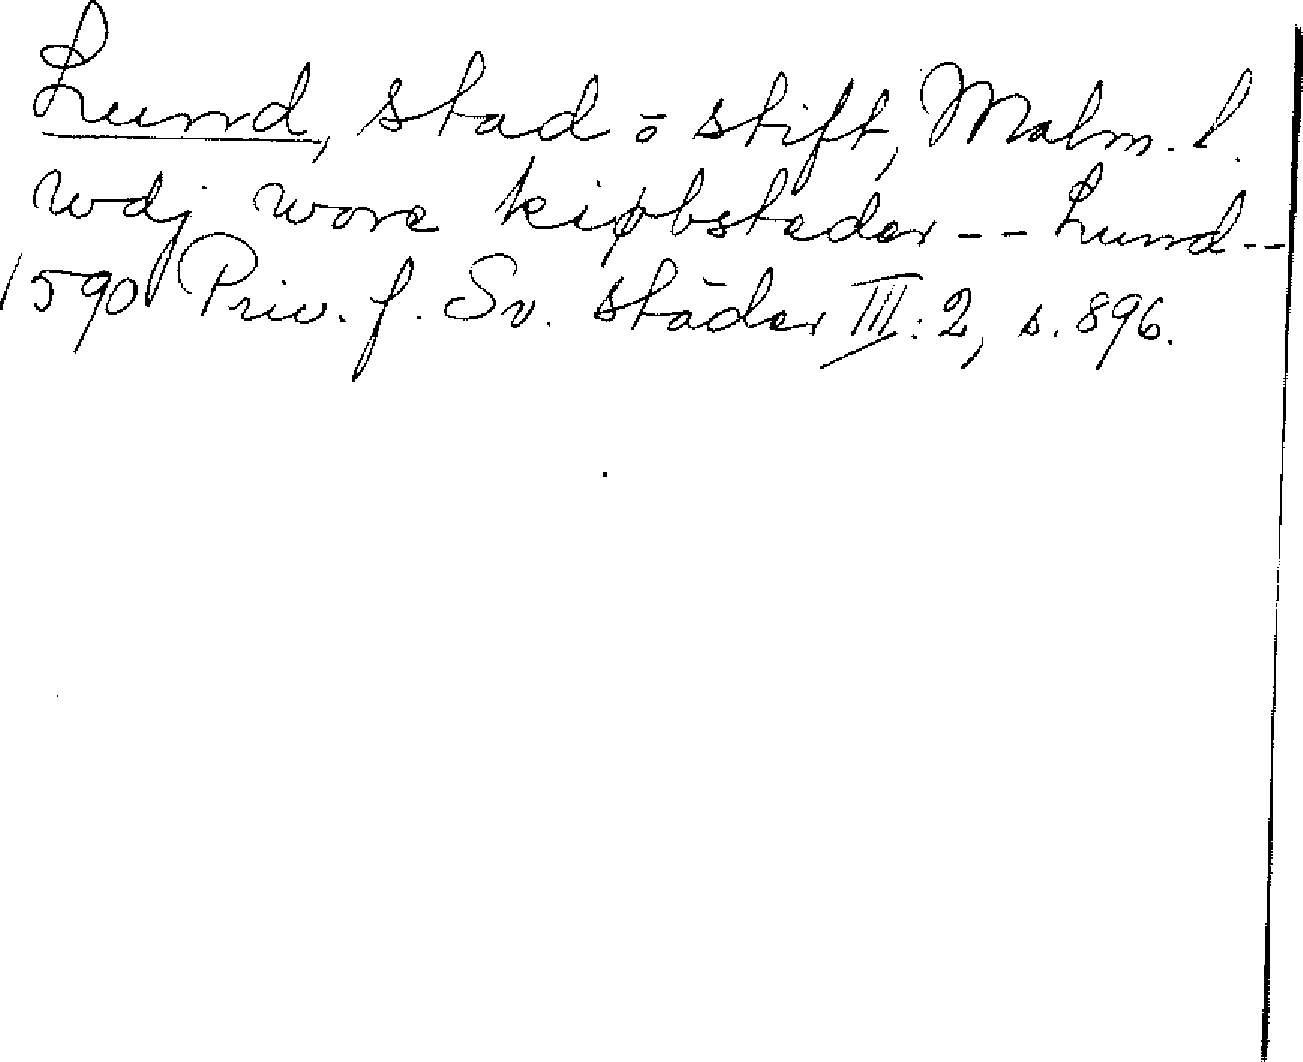 Lund, stad o stift, Malm. l.
wdj wore kiøbsteder -- Lund --
1590 Priv. f. Sv. städer III:2, s. 896.